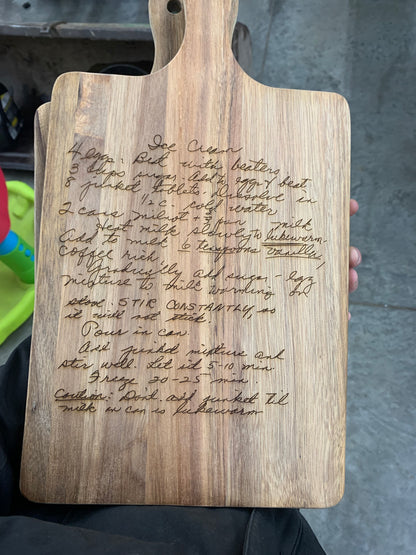 Ice Cream
4 eggs. Beat with beaters
3 cups sugar. Add to eggs & beat
8 junket tablets. Dissolve in
1/2 c. cold water
2 cans milnot + 3 milk
Heat milk slowly to lukewarm
Add to milk 6 teaspoons Vanilla,
coffee rich,
Gradually add sugar - egg
mixture to milk warming on
stove. STIR CONSTANTLY, so
it will not stick.
Pour in can
Add junket mixture and
stir well. Let sit 5-10 min
Freeze 20-25 min.
Caution: Don't add junket til
milk in can is lukewarm